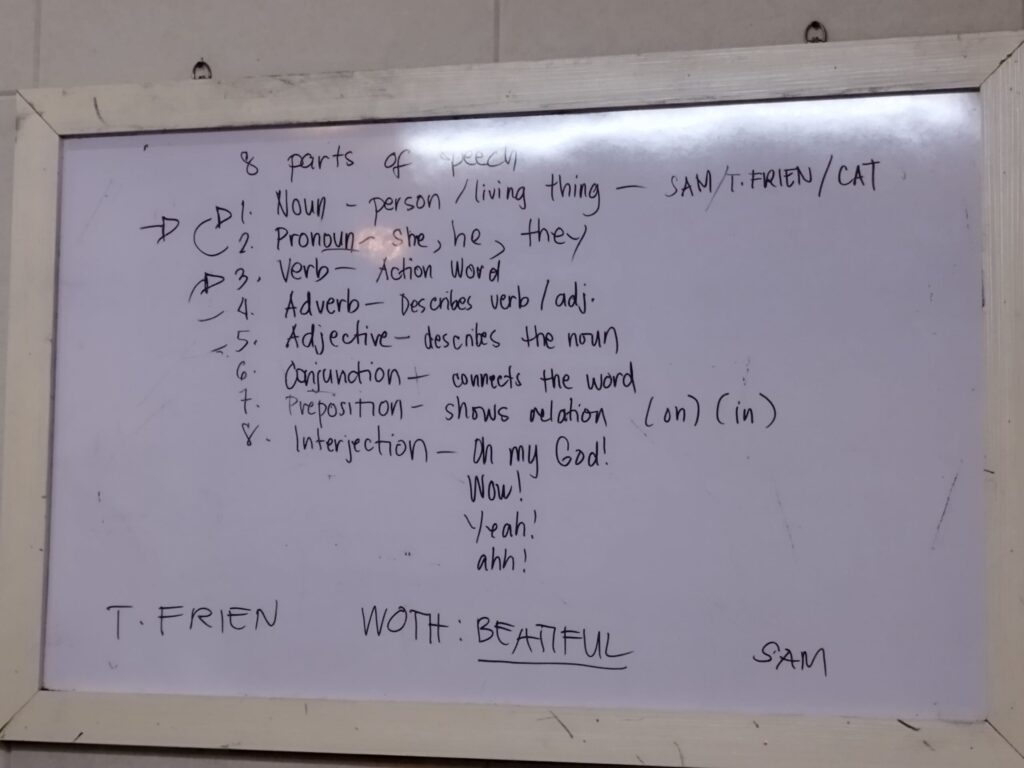 8 parts of speech
1. Noun - person / living thing - SAM/T.FRIEN/CAT
2. Pronoun - she, he, they
3. Verb - Action Word
4. Adverb - Describes verb / adj.
5. Adjective - describes the noun
6. Conjunction - connects the word
7. Preposition - shows relation (on) (in)
8. Interjection - Oh my God!
Wow!
Yeah!
ahh!
T. FRIEN WOTH: BEATIFUL SAM